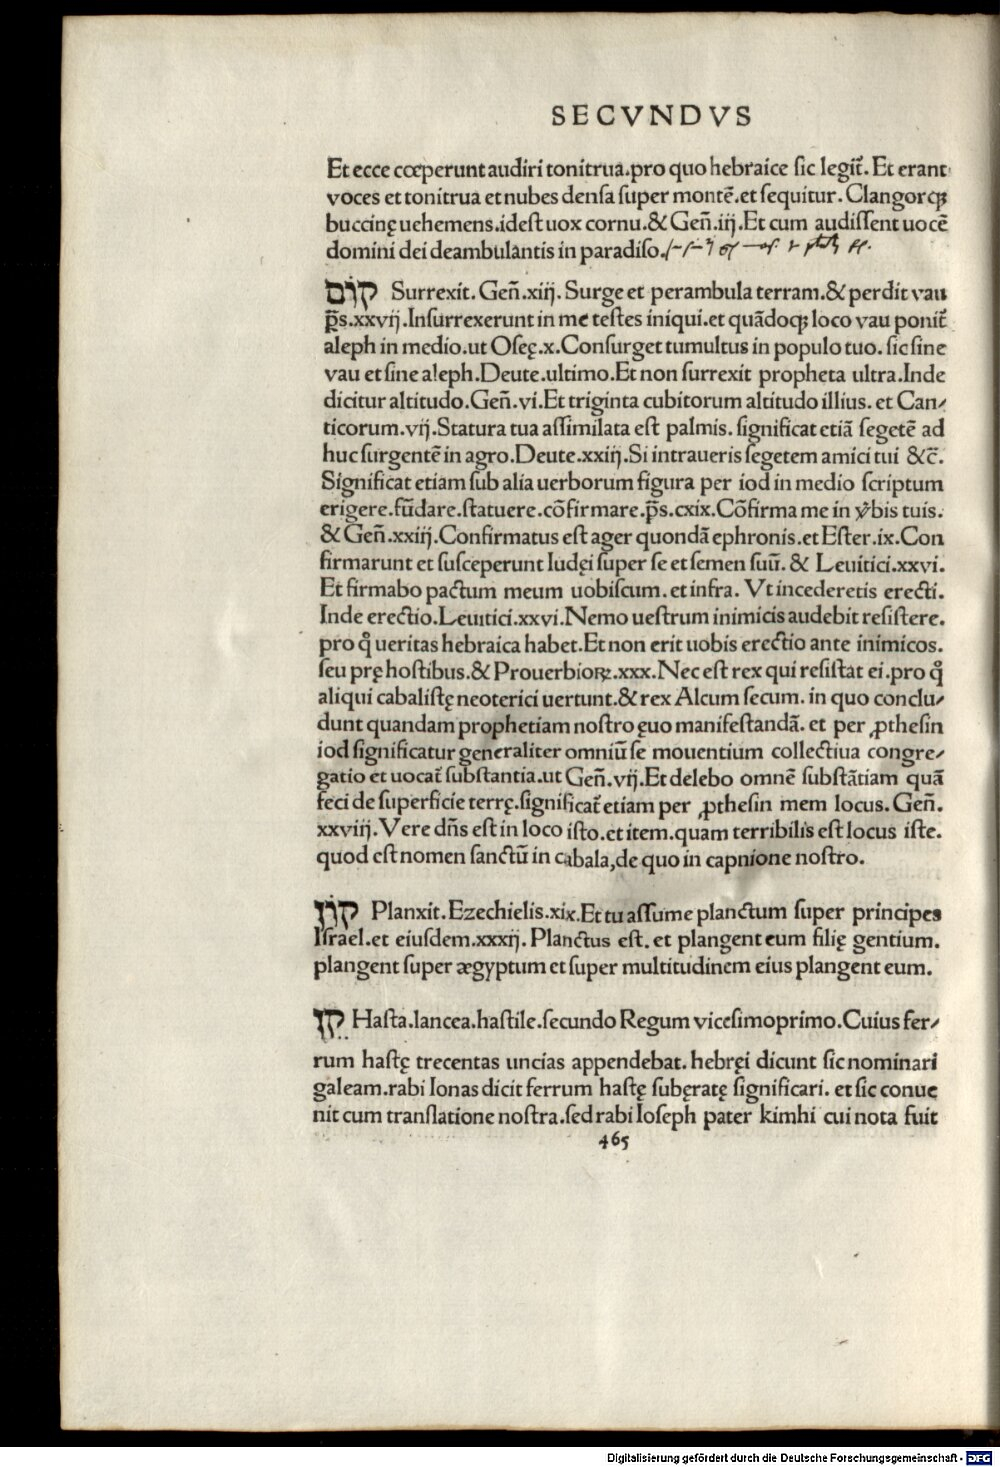 SECVNDVS
Et ecce cœperunt audiri tonitrua.pro quo hebraice ſic legit̃. Et erant
voces et tonitrua et nubes denſa ſuper montē.et ſequitur. Clangorq;
buccinę uehemens.ideſt uox cornu.& Geñ.iij.Et cum audiſſent uocē
domini dei deambulantis in paradiſo.
קוֹם Surrexit. Geñ.xiij. Surge et perambula terram.& perdit vau
p̄s.xxvij.Inſurrexerunt in me teſtes iniqui.et quādoq; loco vau ponit̃
aleph in medio.ut Oſeę.x.Conſurget tumultus in populo tuo. ſic ſine
vau et ſine aleph.Deute.ultimo.Et non ſurrexit propheta ultra.Inde
dicitur altitudo.Geñ.vi.Et triginta cubitorum altitudo illius. et Can⸗
ticorum.vij.Statura tua aſſimilata eſt palmis. ſignificat etiā ſegetē ad
huc ſurgentē in agro.Deute.xxiij.Si intraueris ſegetem amici tui &c̄.
Significat etiam ſub alia uerborum figura per iod in medio ſcriptum
erigere.fūdare.ſtatuere.cōfirmare.p̄s.cxix.Cōfirma me in v̓bis tuis.
& Geñ.xxiij.Confirmatus eſt ager quondā ephronis.et Eſter.ix.Con
firmarunt et ſuſceperunt Iudęi ſuper ſe et ſemen ſuū. & Leuitici.xxvi.
Et firmabo pactum meum uobiſcum.et infra. Vt incederetis erecti.
Inde erectio.Leuitici.xxvi.Nemo ueſtrum inimicis audebit reſiſtere.
pro q̊ ueritas hebraica habet.Et non erit uobis erectio ante inimicos.
ſeu prę hoſtibus.& Prouerbioꝝ.xxx.Nec eſt rex qui reſiſtat ei.pro q̊
aliqui cabaliſtę neoterici uertunt.& rex Alcum ſecum. in quo conclu⸗
dunt quandam prophetiam noſtro ęuo manifeſtandā. et per ꝓtheſin
iod ſignificatur generaliter omniū ſe mouentium collectiua congre⸗
gatio et uocat̃ ſubſtantia.ut Geñ.vij.Et delebo omnē ſubſtātiam quā
feci de ſuperficie terrę.ſignificat̃ etiam per ꝓtheſin mem locus. Geñ.
xxviij.Vere dn̄s eſt in loco iſto.et item.quam terribilis eſt locus iſte.
quod eſt nomen ſanctū in cabala,de quo in capnione noſtro.
קוֹן Planxit. Ezechielis.xix.Et tu aſſume planctum ſuper principes
Iſrael.et eiuſdem.xxxij. Planctus eſt. et plangent eum filię gentium.
plangent ſuper ægyptum et ſuper multitudinem eius plangent eum.
קֵן Haſta.lancea.haſtile.ſecundo Regum viceſimoprimo.Cuius fer⸗
rum haſtę trecentas uncias appendebat. hebręi dicunt ſic nominari
galeam.rabi Ionas dicit ferrum haſtę ſubęratę ſignificari. et ſic conue
nit cum tranſlatione noſtra.ſed rabi Ioſeph pater kimhi cui nota fuit
465
Digitalisierung gefördert durch die Deutsche Forschungsgemeinschaft - DFG